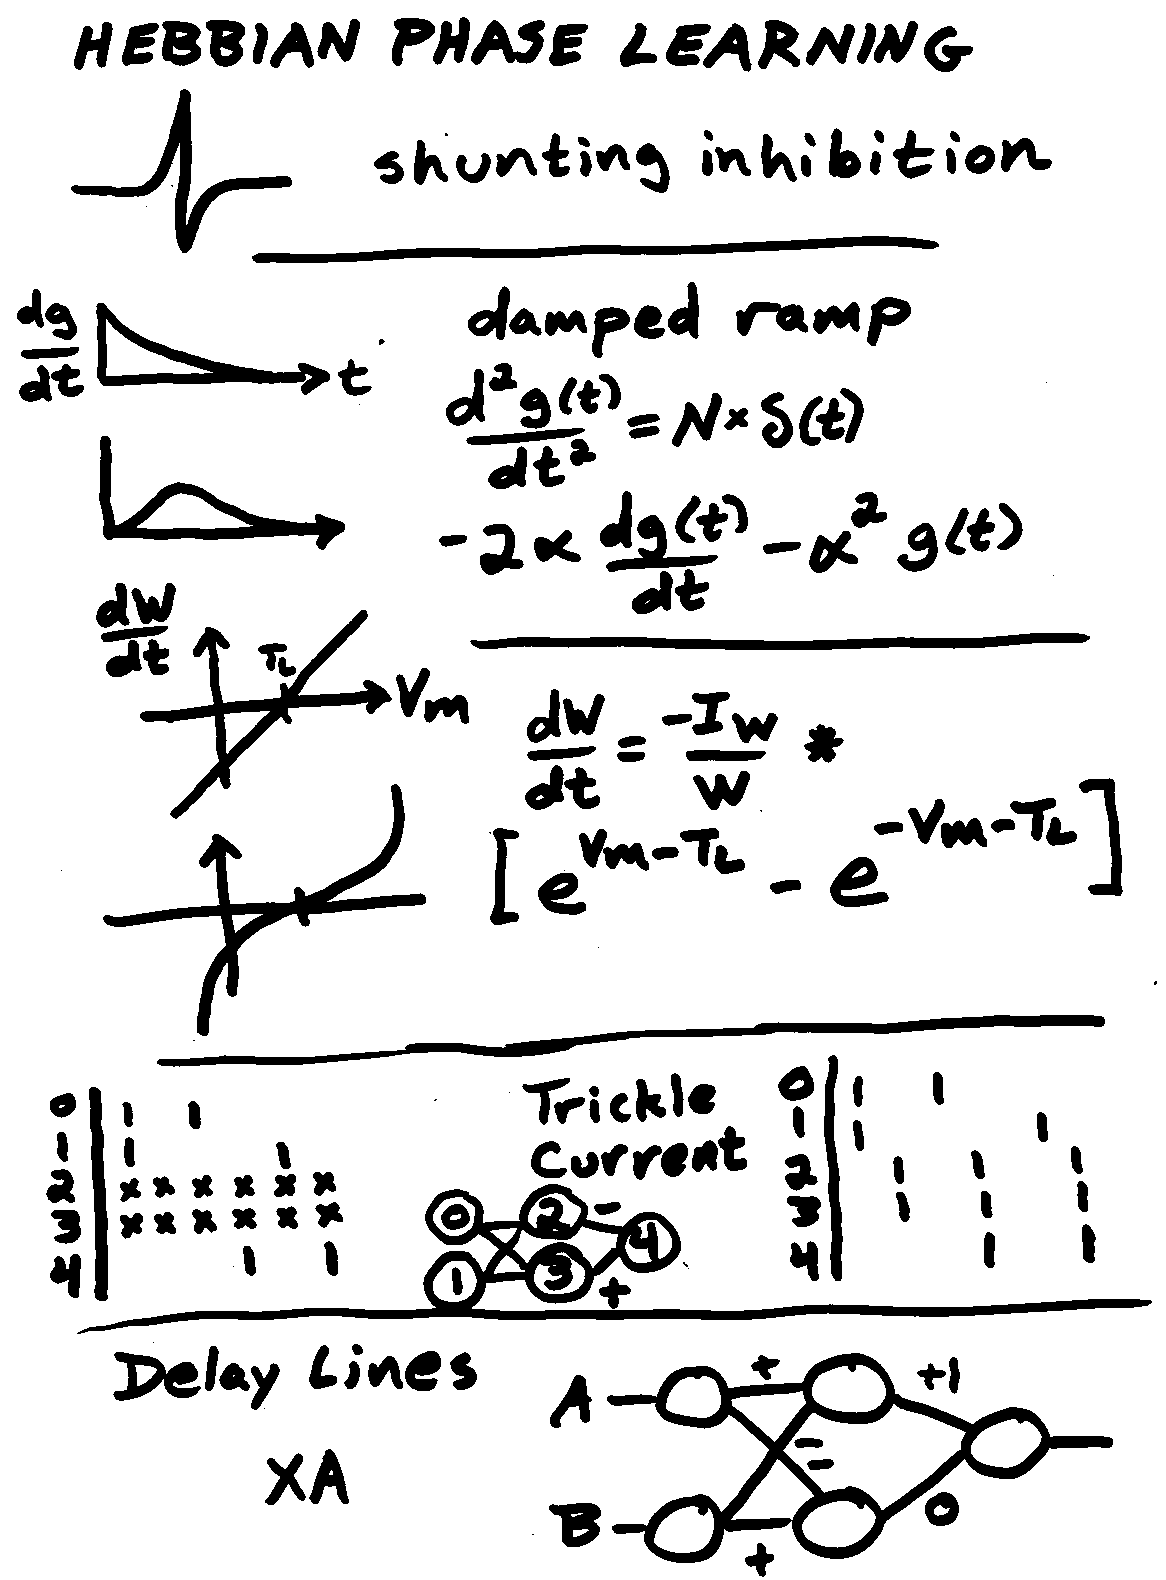 HEBBIAN PHASE LEARNING
shunting inhibition
dg/dt
t
damped ramp
d²g(t)/dt² = N × δ(t)
- 2α dg(t)/dt - α² g(t)
dW/dt
TL
Vm
dW/dt = -Iw/W *
[e^(Vm-TL) - e^(-Vm-TL)]
0 | 1 1
1 | 1 1
2 | x x x x x x
3 | x x x x x x
4 | 1 1
Trickle
Current
0 2 -
4
1 3 +
0 | 1 1
1 | 1 1
2 | 1 1 1
3 | 1 1 1
4 | 1 1
Delay Lines
XA
A + +1
-
-
B + 0